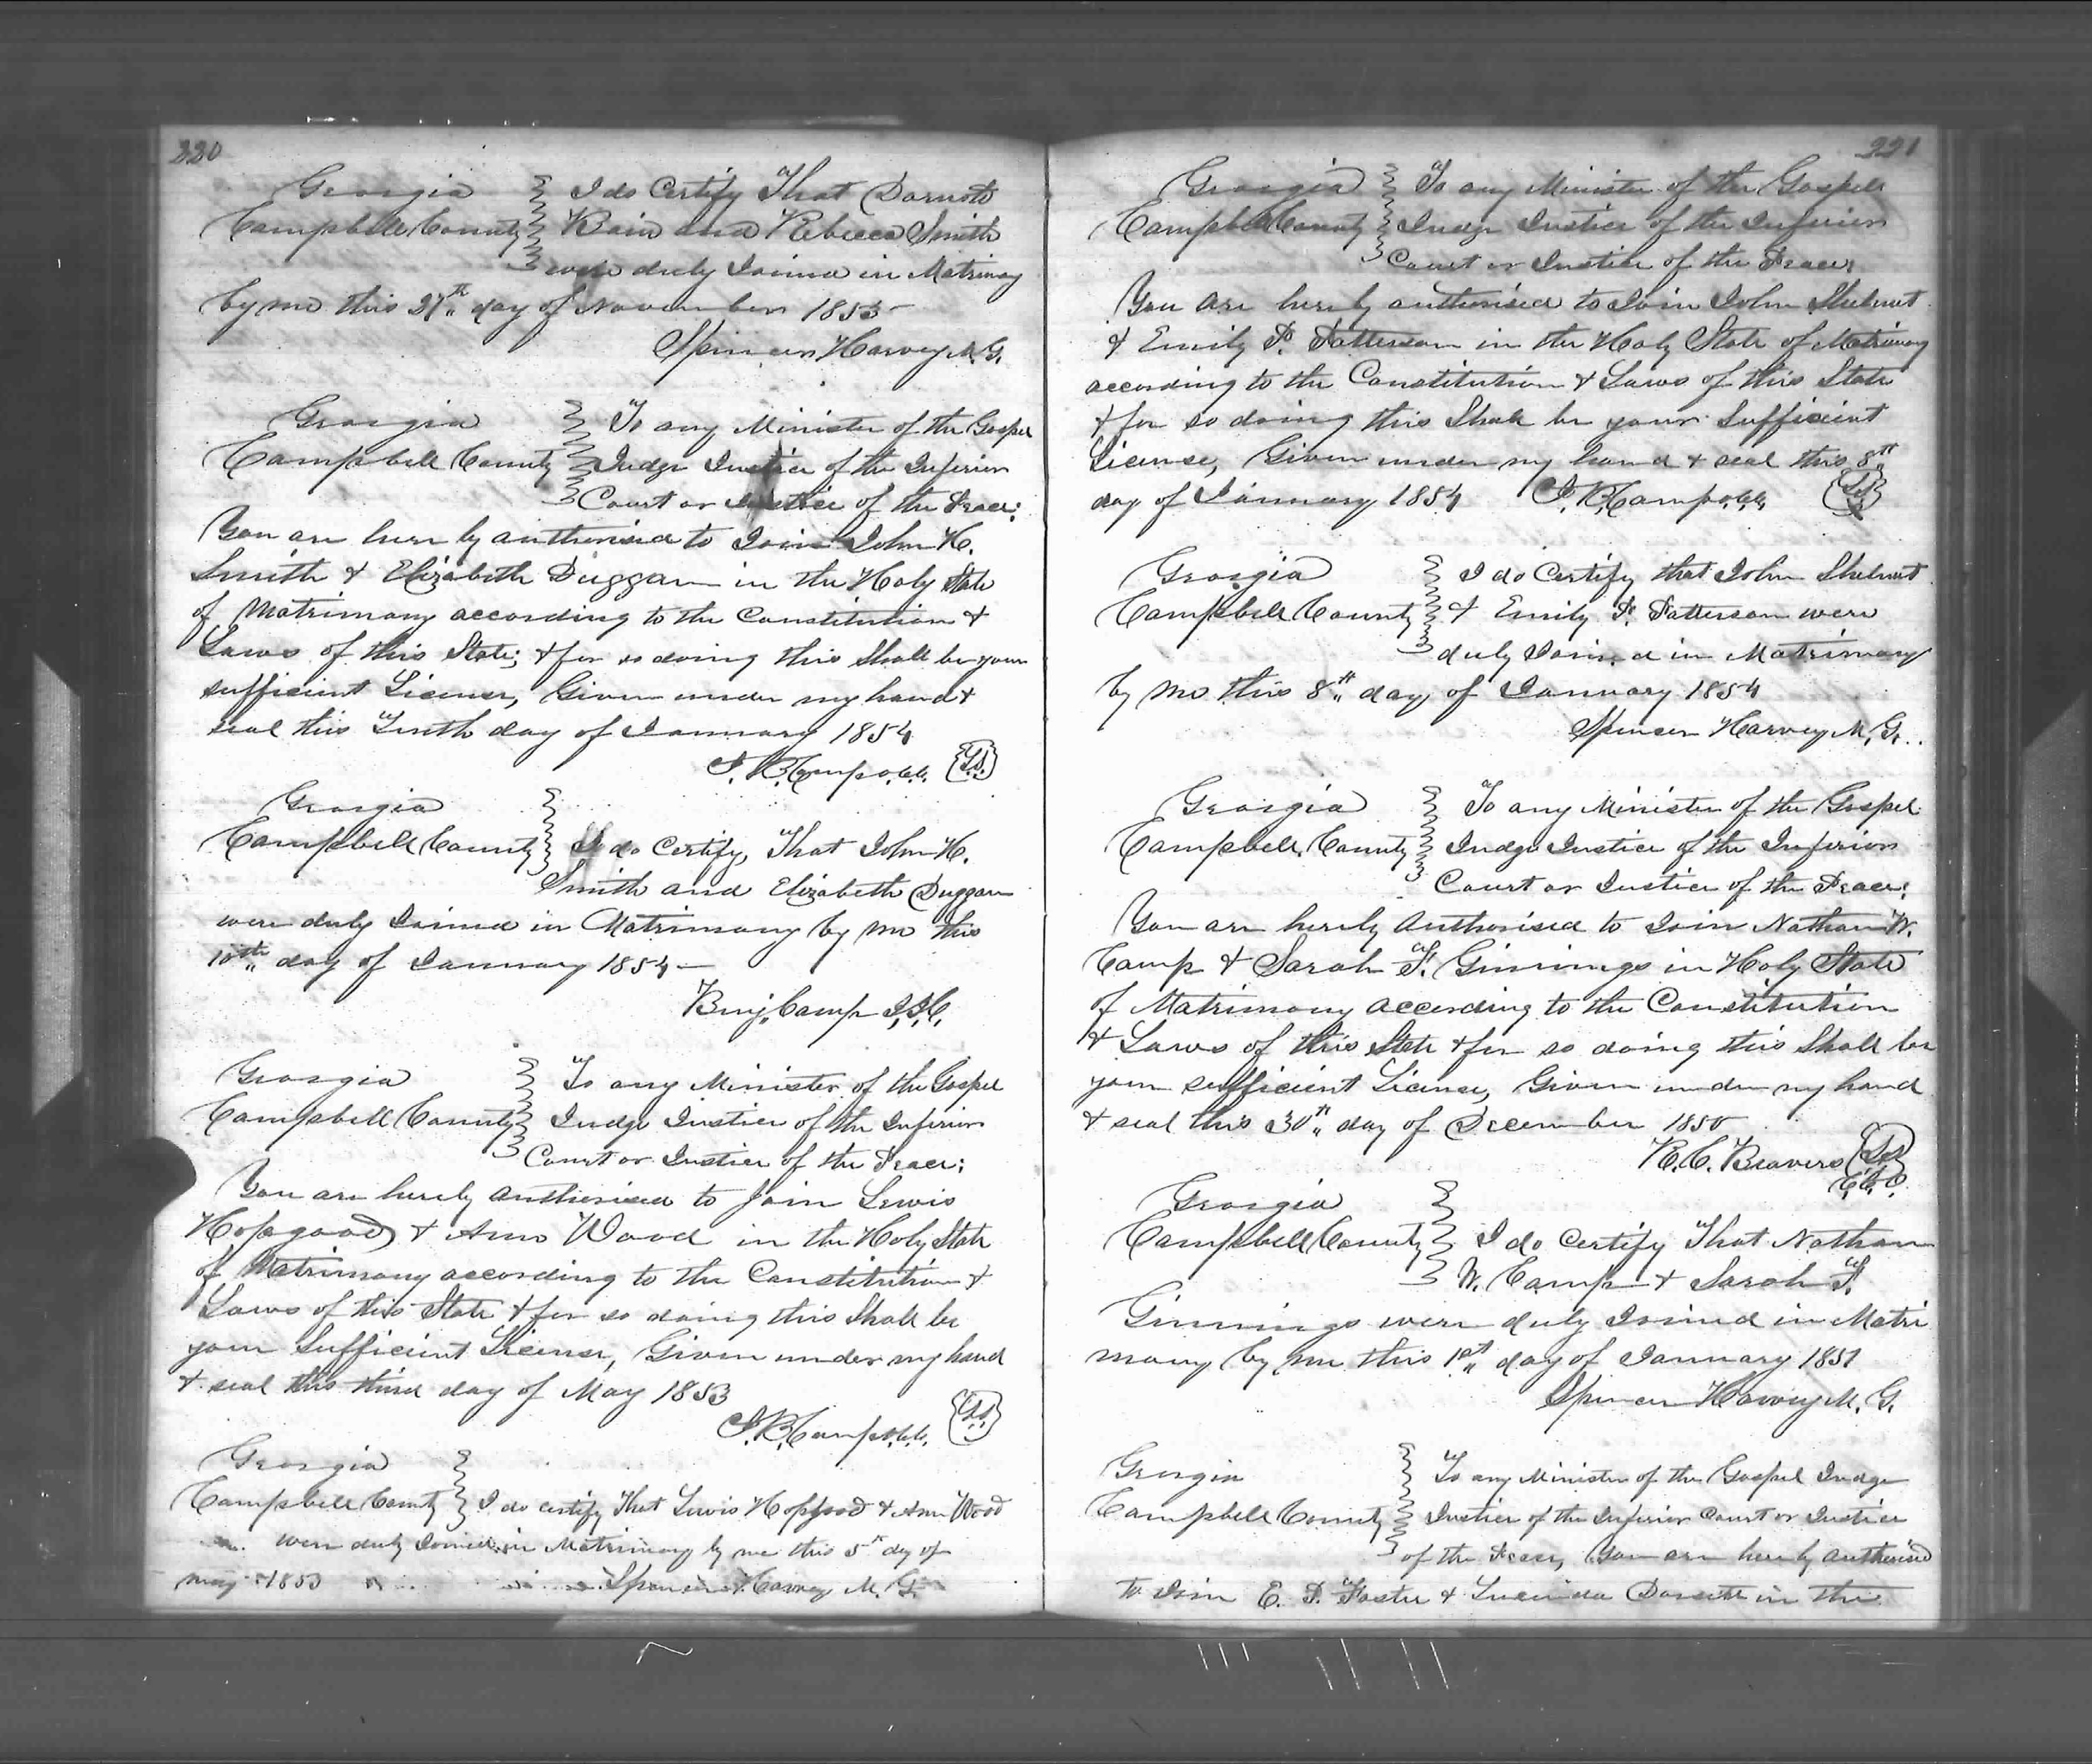 220
Georgia } I do Certify That
Campbell County } Bain and Rebecca Smith
were duly Joined in Matrimony
by me this 27th day of November 1853
Spencer Harvey M.G.
Georgia } To any Minister of the Gospel
Campbell County } Judge Justice of the Inferior
Court or Justice of the Peace;
You are here by authorised to Join John H.
Smith & Elizabeth Duggan in the Holy State
of Matrimony according to the Constitution &
Laws of this State; & for so doing this Shall be your
sufficient License, Given under my hand &
seal this Tenth day of January 1854
J. B. Camp O.C.C. {L.S.}
Georgia }
Campbell County } I do Certify, That John H.
Smith and Elizabeth Duggan
were duly Joined in Matrimony by me this
10th day of January 1854
Benj. Camp J.I.C.
Georgia } To any Minister of the Gospel
Campbell County } Judge Justice of the Inferior
Court or Justice of the Peace;
You are hereby authorised to Join Lewis
Hopgood & Ann Wood in the Holy State
of Matrimony according to the Constitution &
Laws of this State & for so doing this Shall be
your Sufficient License, Given under my hand
& seal this third day of May 1853
J. B. Camp O.C.C. {L.S.}
Georgia }
Campbell County } I do certify That Lewis Hopgood & Ann Wood
were duly Joined in Matrimony by me this 5th day of
may 1853 Spencer Harvey M. G.
221
Georgia } To any Minister of the Gospel
Campbell County } Judge Justice of the Inferior
Court or Justice of the Peace;
You are here by authorised to Join John Shelnut
& Emily P. Patterson in the Holy State of Matrimony
according to the Constitution & Laws of this State
& for so doing this Shall be your Sufficient
License, Given under my hand & seal this 8th
day of January 1854 J. B. Camp O.C.C. {L.S.}
Georgia } I do Certify that John Shelnut
Campbell County } & Emily P. Patterson were
duly Joined in Matrimony
by me this 8th day of January 1854
Spencer Harvey M.G.
Georgia } To any Minister of the Gospel
Campbell County } Judge Justice of the Inferior
Court or Justice of the Peace;
You are hereby Authorised to Join Nathan W.
Camp & Sarah T. Ginnings in Holy State
of Matrimony according to the Constitution
& Laws of this State & for so doing this Shall be
your sufficient License, Given under my hand
& seal this 30th day of December 1850
R. C. Beavers {L.S.}
C.C.O.
Georgia }
Campbell County } I do Certify That Nathan
W. Camp & Sarah T.
Ginnings were duly Joined in Matri
mony by me this 1st day of January 1851
Spencer Harvey M. G.
Georgia } To any Minister of the Gospel Judge
Campbell County } Justice of the Inferior Court or Justice
of the Peace, You are here by authorised
to Join E. P. Foster & Lucinda Dorsett in the